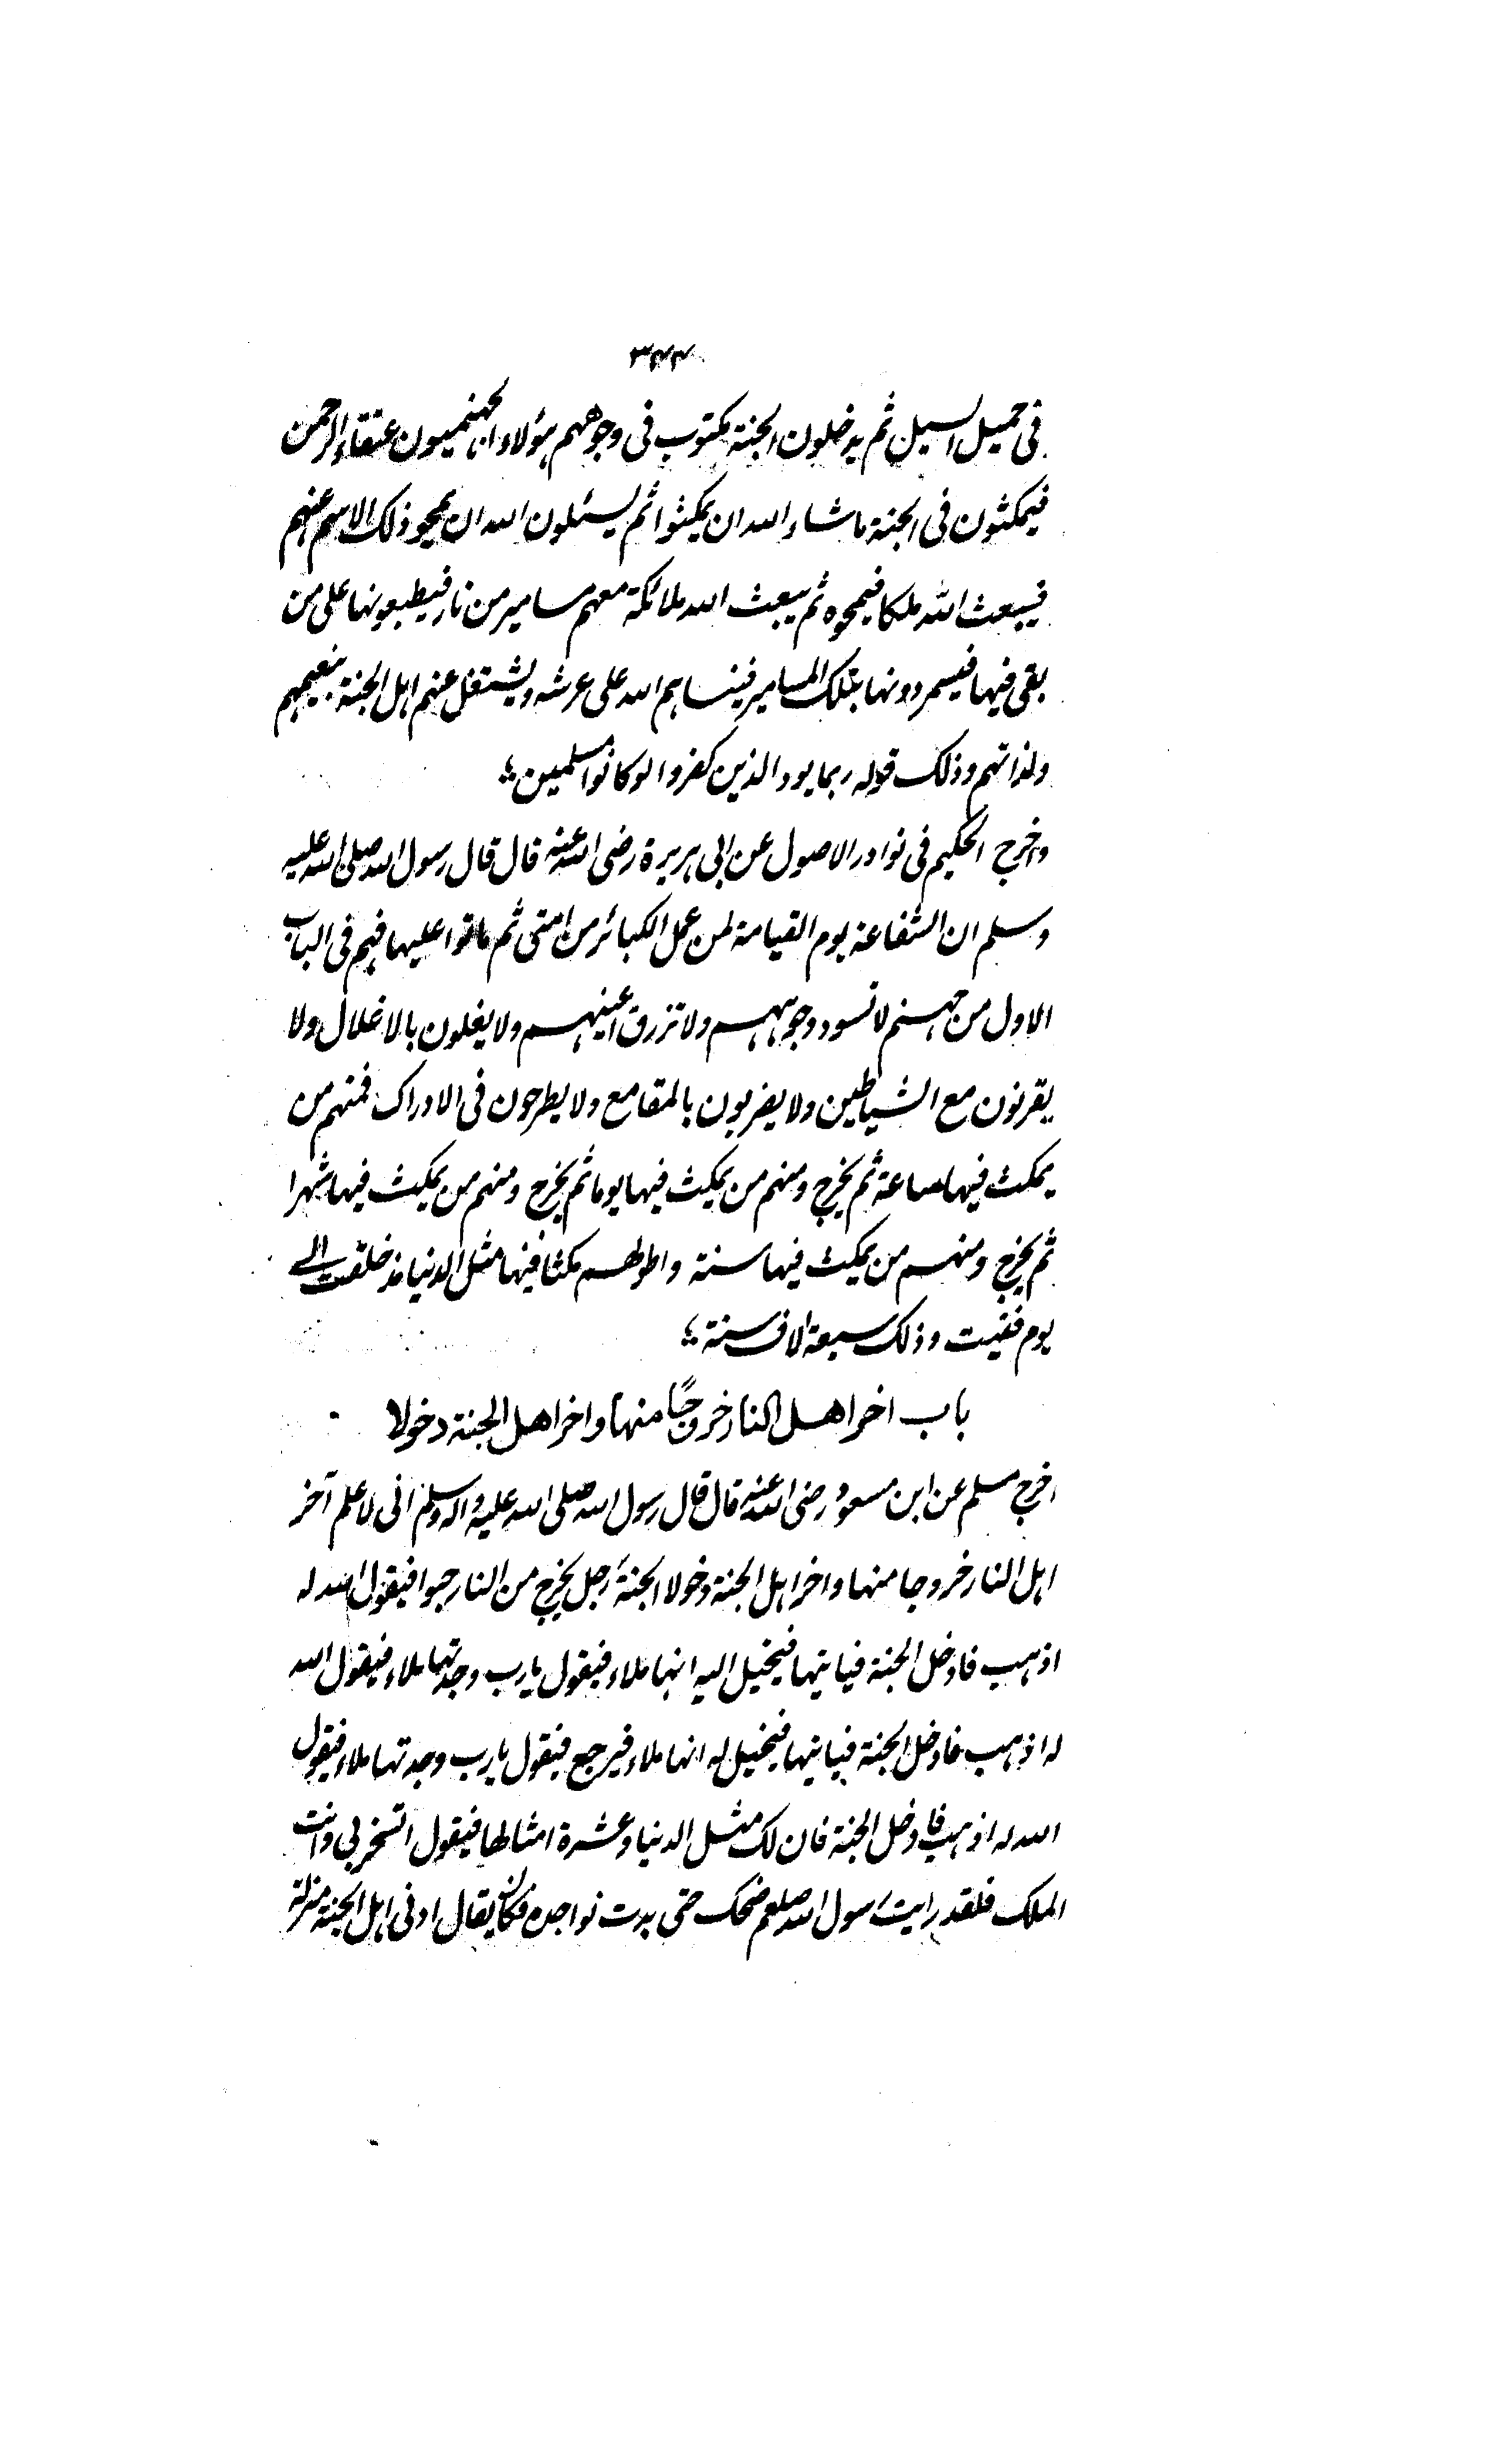 ۳۴۴
فی حمیل السیل ثم یدخلون الجنة مکتوب فی وجوههم هؤلاء الجهنمیون عتقاء الرحمن
فیمکثون فی الجنة ماشاء الله ان یمکثوا ثم یسئلون الله ان یمحو ذلک الاسم عنهم
فیبعث الله ملکا فیمحوه ثم یبعث الله ملائکة معهم مسامیر من نار فیطبعونها علی من
بقی فیها فیسمرونها بتلک المسامیر فینساهم الله علی عرشه ویشتغل عنهم اهل الجنة بنعیمهم
ولذاتهم وذلک قوله ربما یود الذین کفروا لو کانوا مسلمین
واخرج الحکیم فی نوادر الاصول عن ابی هریرة رضی الله عنه قال قال رسول الله صلی الله علیه
وسلم ان الشفاعة یوم القیامة لمن عمل الکبائر من امتی ثم ماتوا علیها فهم فی الباب
الاول من جهنم لا تسود وجوههم ولا تزرق اعینهم ولا یغلون بالاغلال ولا
یقرنون مع الشیاطین ولا یضربون بالمقامع ولا یطرحون فی الادراک فمنهم من
یمکث فیها ساعة ثم یخرج ومنهم من یمکث فیها یوما ثم یخرج ومنهم من یمکث فیها شهرا
ثم یخرج ومنهم من یمکث فیها سنة واطولهم مکثا فیها مثل الدنیا منذ خلقت الے
یوم فنیت وذلک سبعة الاف سنة
باب اخر اهل النار خروجًا منها واخر اهل الجنة دخولا
اخرج مسلم عن ابن مسعود رضی الله عنه قال قال رسول الله صلی الله علیه واله وسلم انی لاعلم آخر
اهل النار خروجا منها واخر اهل الجنة دخولا الجنة رجل یخرج من النار حبوا فیقول الله له
اذهب فادخل الجنة فیاتیها فیخیل الیه انها ملاء فیقول یارب وجدتها ملاء فیقول الله
له اذهب فادخل الجنة فیاتیها فیخیل له انها ملاء فیرجع فیقول یارب وجدتها ملاء فیقول
الله له اذهب فادخل الجنة فان لک مثل الدنیا وعشرة امثالها فیقول اتسخر بی وانت
الملک فلقد رایت رسول الله صلعم ضحک حتی بدت نواجذه فکان یقال ادنی اهل الجنة منزلة